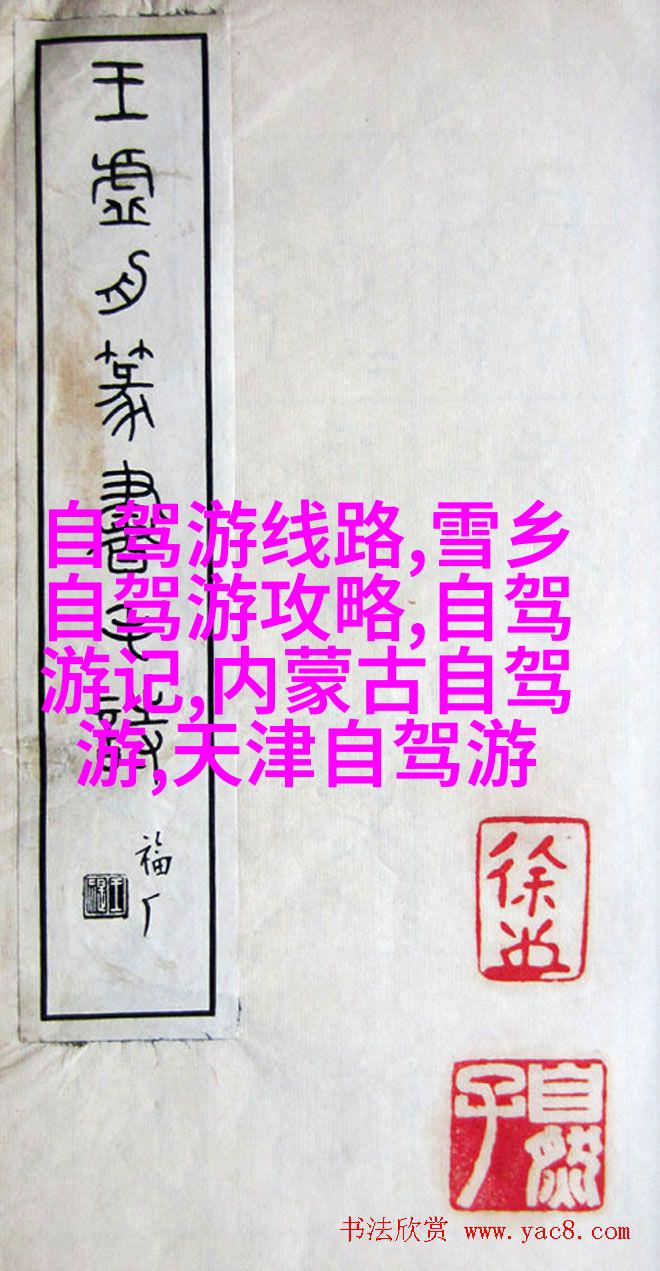 王虛舟篆書
福厂
自驾游线路,雪乡
自驾游攻略,自驾
游记,内蒙古自驾
游,天津自驾游
自然子
书法欣赏 www.yac8.com